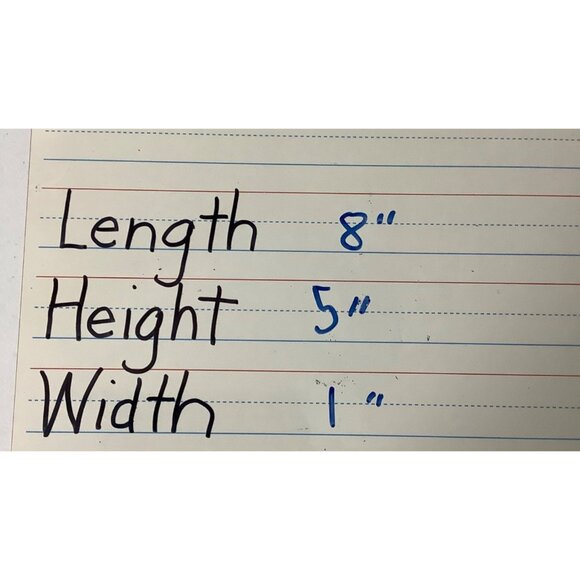 Length 8"
Height 5"
Width 1"